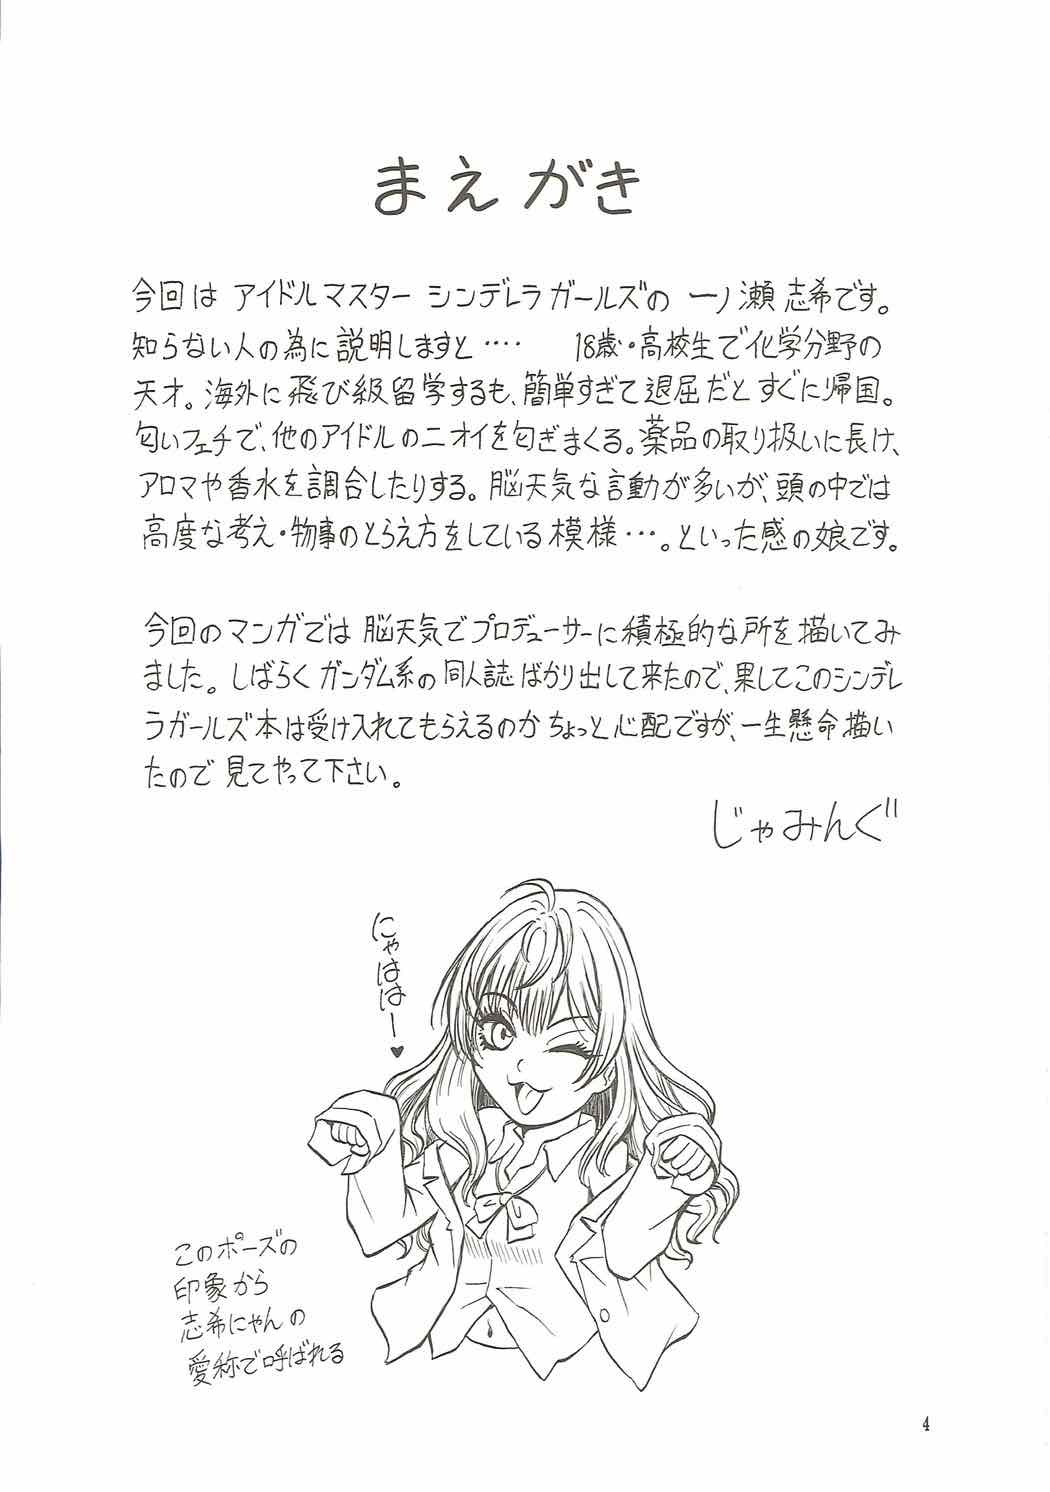 まえがき
今回は アイドルマスター シンデレラガールズの 一ノ瀬 志希です。
知らない人の為に説明しますと‥‥ 18歳・高校生で化学分野の
天才。海外に飛び級留学するも、簡単すぎて退屈だとすぐに帰国。
匂いフェチで、他のアイドルのニオイを匂ぎまくる。薬品の取り扱いに長け、
アロマや香水を調合したりする。脳天気な言動が多いが、頭の中では
高度な考え・物事のとらえ方をしている模様…。といった感の娘です。
今回のマンガでは脳天気でプロデューサーに積極的な所を描いてみ
ました。しばらくガンダム系の同人誌ばかり出して来たので、果してこのシンデレ
ラガールズ本は受け入れてもらえるのかちょっと心配ですが、一生懸命描い
たので見てやって下さい。
じゃみんぐ
にゃははー♥
このポーズの
印象から
志希にゃんの
愛称で呼ばれる
4